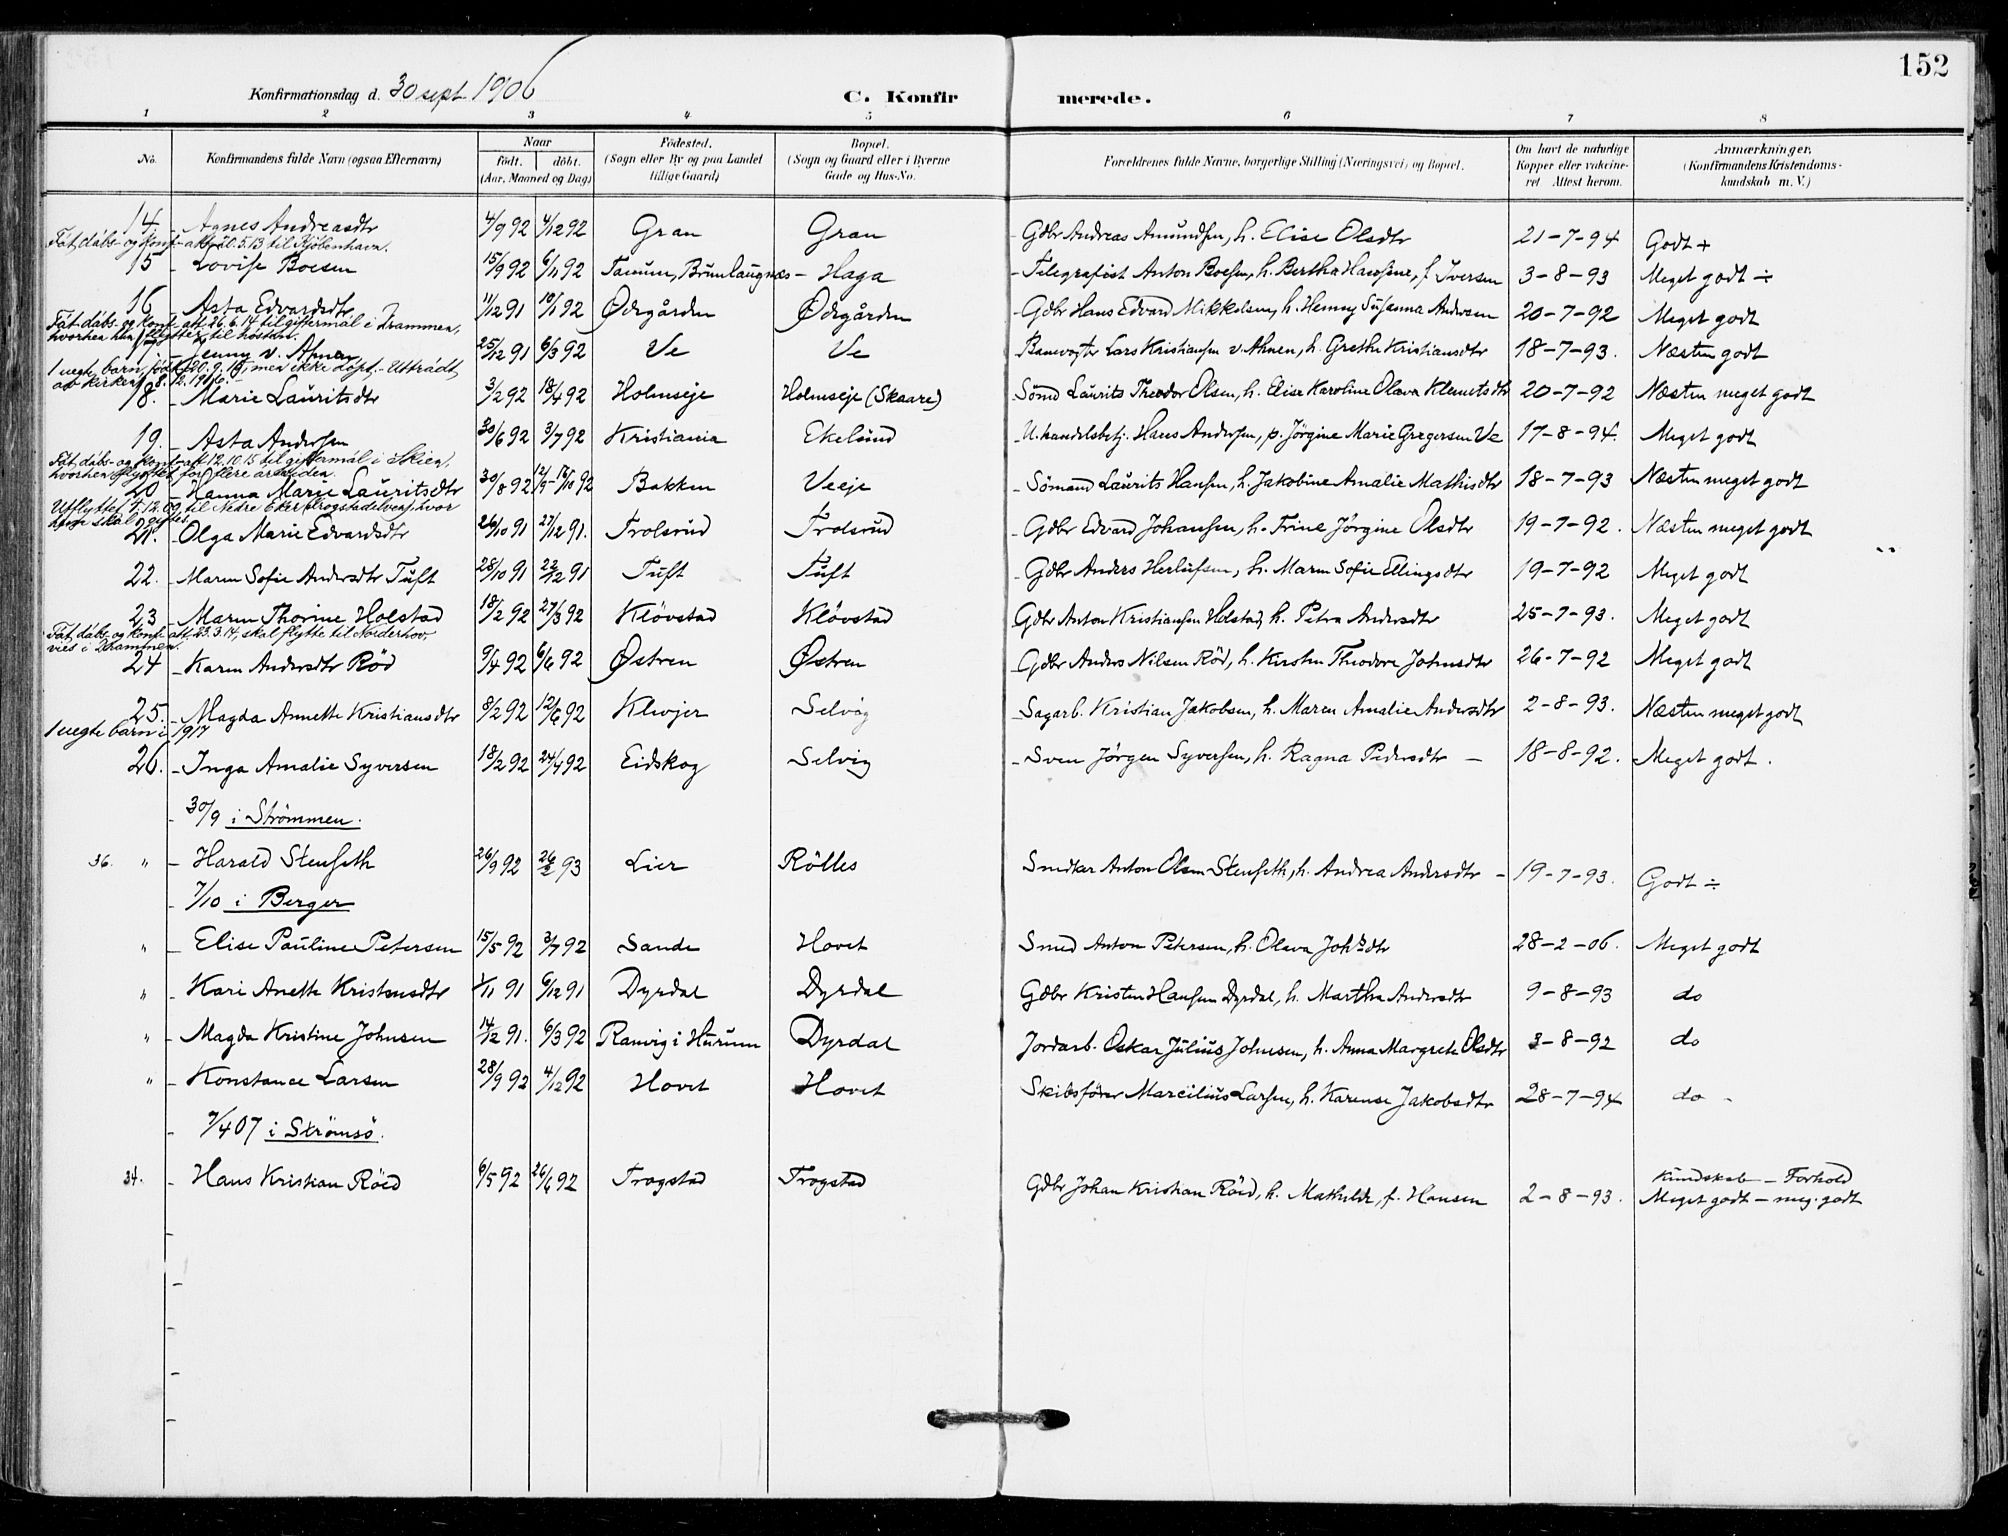 152
Konfirmationsdag d. 30 sept 1906
C. Konfirmerede.
1 2 3 4 5 6 7 8
No.
Konfirmandens fulde Navn (ogsaa Efternavn)
Naar
födt. döbt.
(Aar, Maaned og Dag)
Födested.
(Sogn eller By og paa Landet
tillige Gaard)
Bopæl.
(Sogn og Gaard eller i Byerne
Gade og Hus-No.
Forældrenes fulde Navne, borgerlige Stilling (Næringsvei) og Bopæl.
Om havt de naturlige
Kopper eller vakcine-
ret. Attest herom.
Anmærkninger.
(Konfirmandens Kristendoms-
kundskab m. V.)
14. Agnes Andreasdtr 4/9 92 4/12 92 Gran Gran Gdbr Andreas Amundsen, h. Elise Olsdtr 21-7-94 Godt +
Fåt dåbs- og konf-att 20.5.13 til Kjöbenhavn.
15 Lovise Boesen 15/9 92 6/11 92 Tanum, Brunlaugnæs - Haga Telegrafist Anton Boesen, h. Bertha Hansine, f Iversen 3-8-93 Meget godt ÷
16 Asta Edvardsdtr 11/12 91 10/1 92 Ødegården Ødegården Gdbr Hans Edvard Mikkelsen, h. Henny Susanna Andersen 20-7-92 Meget godt
Fåt dåbs- og konf-att. 26.6.14 til giftermål i Drammen,
hvorhen hun flytter til høsten.
17 Jenny v. Ahnen 25/12 91 6/3 92 Ve Ve Banevogter Lars Kristiansen v. Ahnen, h. Grethe Kristiansdtr 18-7-93. Næsten godt
1 uegte barn, født 20.9.16, men ikke döpt. - Utträdt
av kirken 8.12.1916.-
18. Marie Lauritsdtr 3/2 92 18/4 92 Holmseje Holmseje (Skaare) Sömd Laurits Theodor Olsen, h. Elise Karoline Olava Klemetsdtr 20-7-92 Næsten meget godt
19. Asta Andersen 30/6 92 3/7 92 Kristiania Ekelund U.handelsbetj. Hans Andersen, p. Jörgine Marie Gregersen Ve 17-8-94. Meget godt
Fåt dåbs- og konf-att 12.10.15 til giftermål i Skien,
hvorhen flyttet for flere år siden.
20 Hanna Marie Lauritsdtr 30/8 92 Bakken Veeje Sömand Laurits Hansen, h. Jakobine Amalie Mathisdtr 18-7-93 Næsten meget godt
Utflyttet 9.12.09 til Nedre Eker (Krogstadelven), hvor
hun skal giftes
21. Olga Marie Edvardsdtr 26/10 91 27/12 91. Trolsrud Trolsrud Gdbr Edvard Johansen, h. Trine Jörgine Olsdtr 19-7-92. Næsten meget godt
22. Maren Sofie Andersdtr Tuft 28/10 91 22/12 91 Tuft Tuft Gdbr Anders Herlufsen, h. Maren Sofie Ellingsdtr 19-7-92 Meget godt
23 Maren Thorine Holstad 18/2 92 27/3 92 Klövstad Klövstad Gdbr Anton Kristiansen Holstad, h. Petra Andersdtr 25-7-93. Meget godt
Fåt dåbs- og konf-att. 23.3.14, skal flytte til Norderhov,
vies i Drammen.
24 Karen Andersdtr Röd 9/4 92 6/6 92 Østren Østren Gdbr Anders Nilsen Röd, h. Kirsten Theodore Johnsdtr 26-7-92 Meget godt
25. Magda Annette Kristiansdtr 8/2 92 12/6 92 Klevjer Selvig Sagarb. Kristian Jakobsen, h. Maren Amalie Andersdtr 2-8-93. Næsten meget godt
1 uegte barn i 1917
26. Inga Amalie Syversen 18/2 92 24/4 92 Eidskog Selvig Sven Jörgen Syversen, h. Ragna Pedersdtr - 18-8-92. Meget godt.
30/9 i Strömmen.
36. " Harald Stenseth 26/9 92 26/2 93 Lier Rölles Smedkar Anton Olsen Stenseth, h. Andrea Andersdtr - 19-7-93. Godt ÷
7/10 i Berger
" Elise Pauline Petersen 15/5 92 3/7 92 Sande Hovet Smed Anton Petersen, h. Olava Johsdtr 28-2-06. Meget godt
" Kari Anette Kristensdtr 1/11 91 6/12 91 Dyrdal Dyrdal Gdbr Kristen Hansen Dyrdal, h. Martha Andersdtr 9-8-93 do
" Magda Kristine Johnsen 14/12 91. 6/3 92 Ranvig i Hurum Dyrdal Jordarb. Oskar Julius Johnsen, h. Anna Margrete Olsdtr 3-8-92 do
" Konstance Larsen 28/9 92 4/12 92 Hovet Hovet Skibsförer Marcilius Larsen, h. Karense Jakobsdtr 28-7-94 do -
7/4 07 i Strömsö.
34. Hans Kristian Röed 6/5 92 26/6 92 Trogstad Trogstad Gdbr Johan Kristian Röed, h. Mathilde, f. Hansen 2-8-93. Kundskab - Forhold
Meget godt - meg. godt